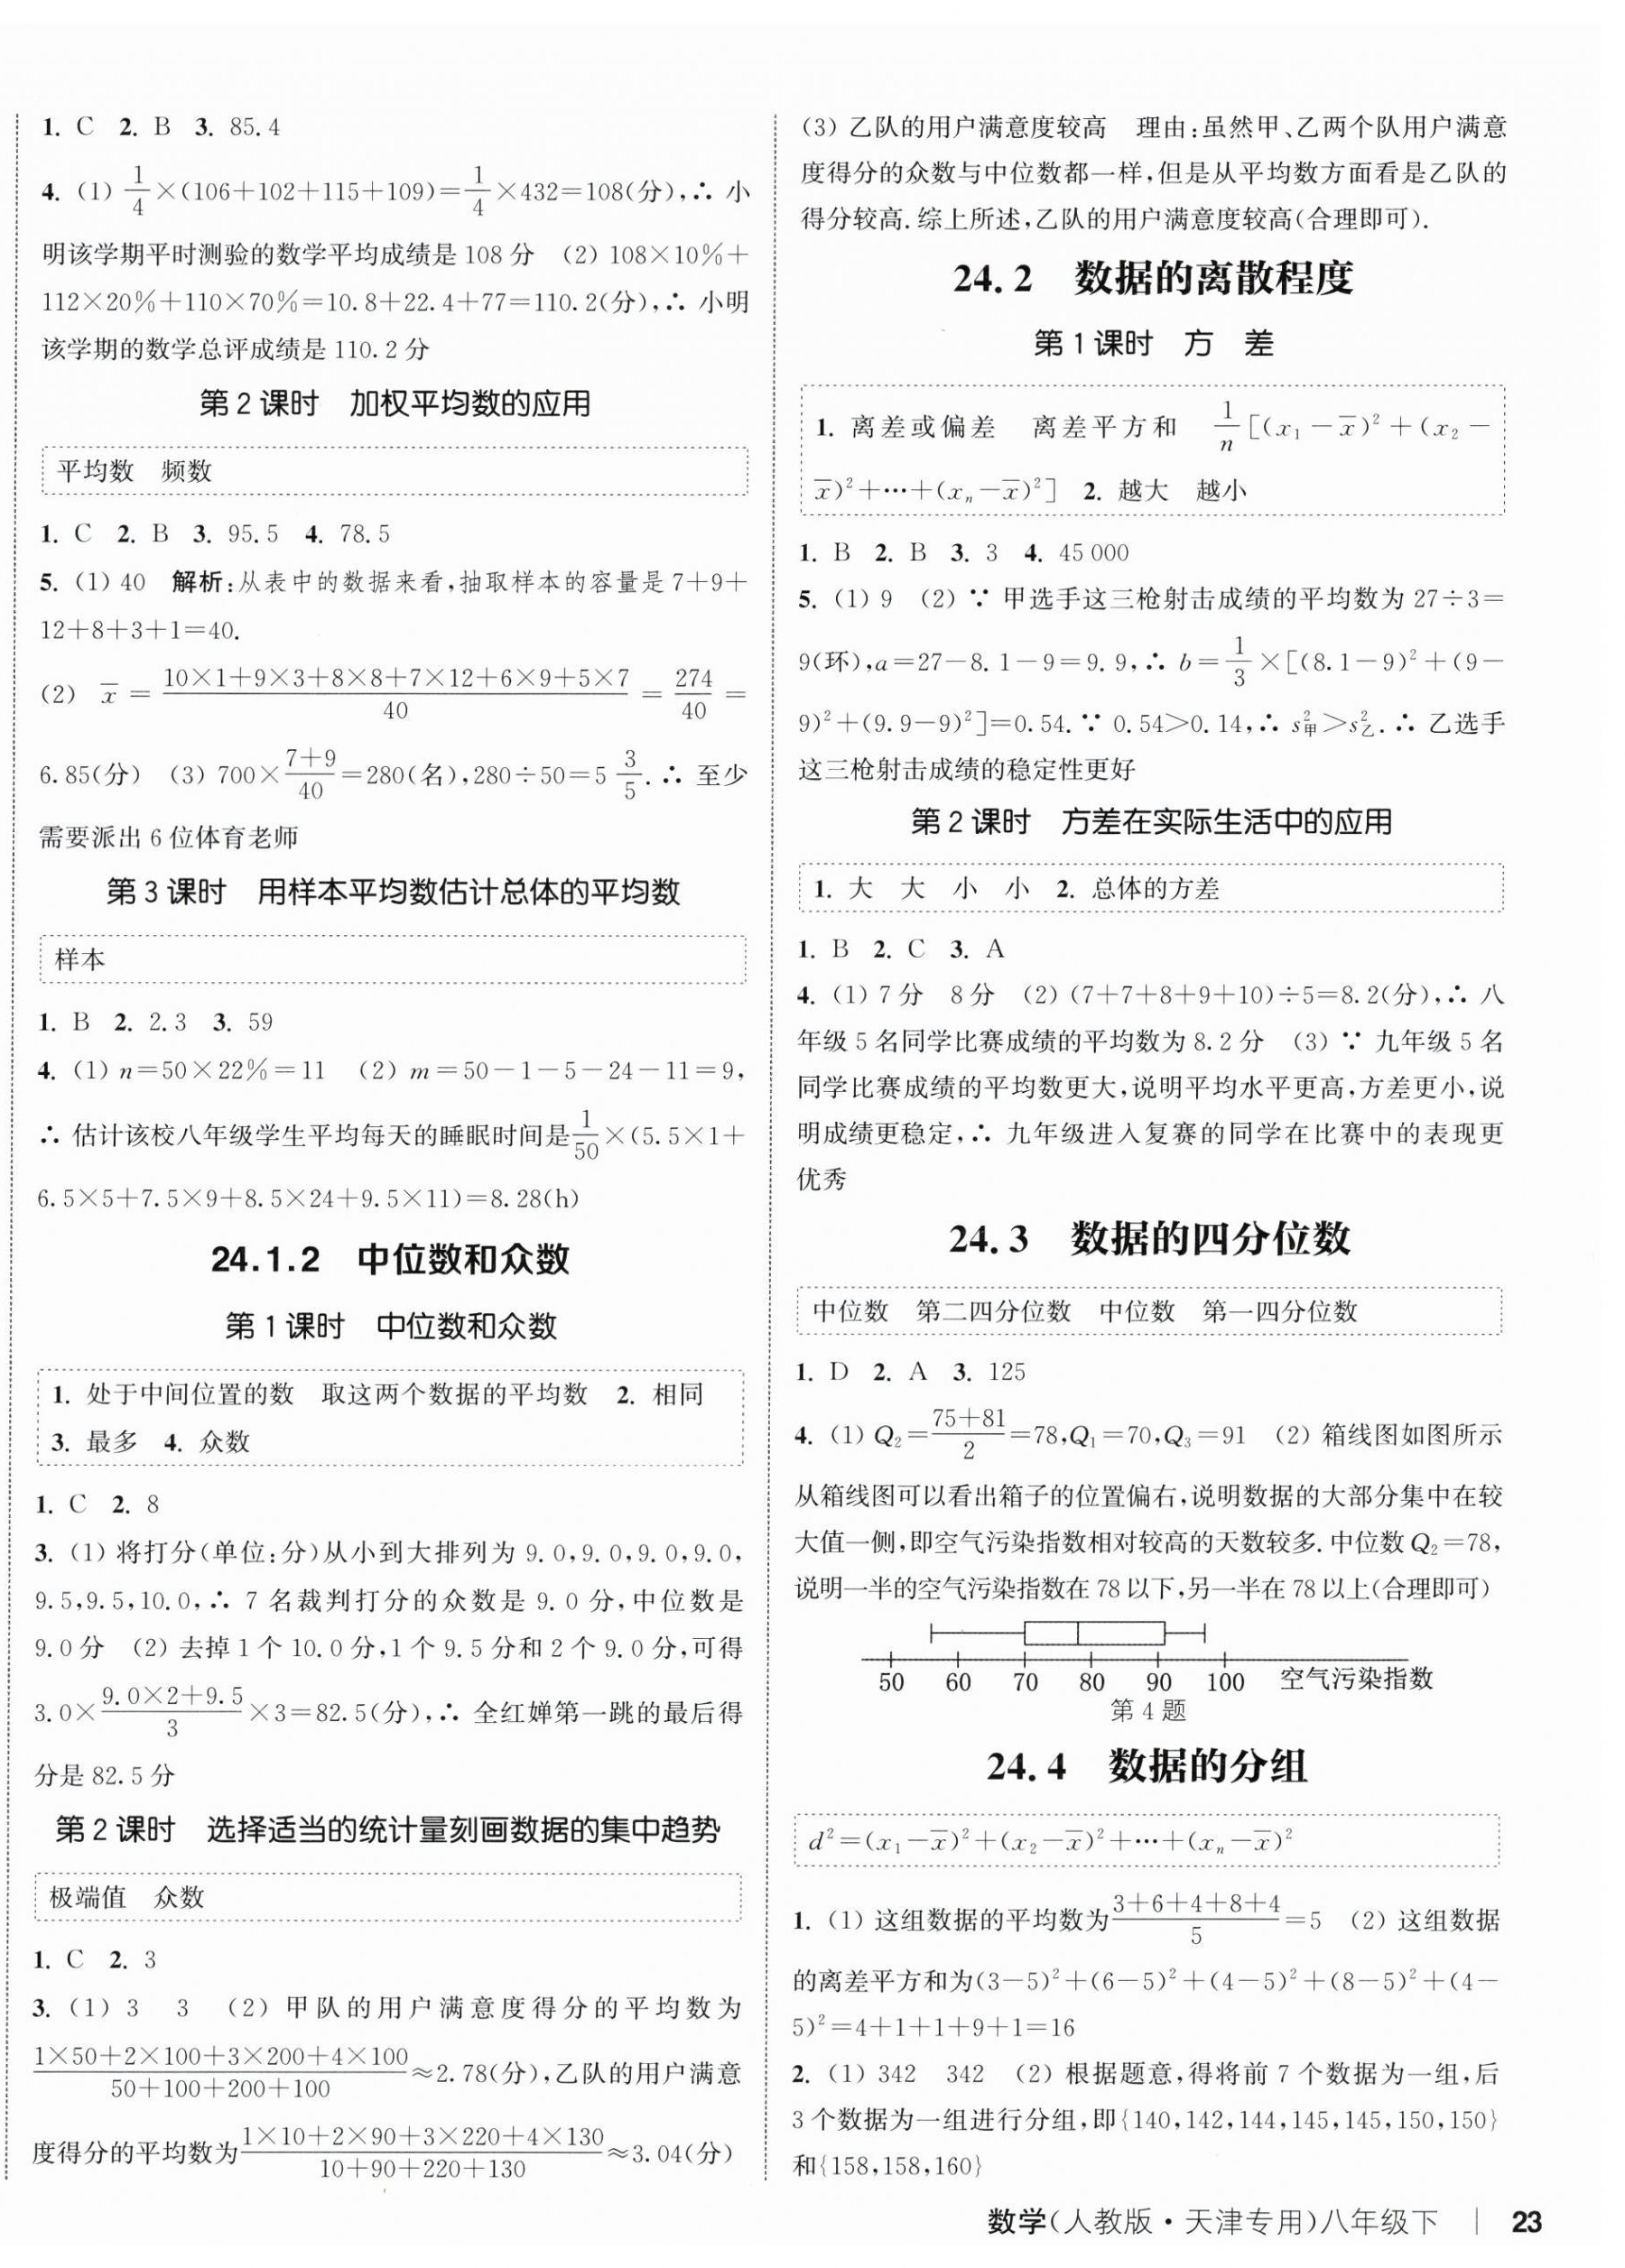 1. C 2. B 3. 85.4
4. (1) 1/4×(106+102+115+109)=1/4×432=108(分),∴ 小
明该学期平时测验的数学平均成绩是 108 分 (2) 108×10%+
112×20%+110×70%=10.8+22.4+77=110.2(分),∴ 小明
该学期的数学总评成绩是 110.2 分
第 2 课时 加权平均数的应用
平均数 频数
1. C 2. B 3. 95.5 4. 78.5
5. (1) 40 解析:从表中的数据来看,抽取样本的容量是 7+9+
12+8+3+1=40.
(2) x̄ = (10×1+9×3+8×8+7×12+6×9+5×7)/40 = 274/40 =
6.85(分) (3) 700×(7+9)/40=280(名),280÷50=5 3/5.∴ 至少
需要派出 6 位体育老师
第 3 课时 用样本平均数估计总体的平均数
样本
1. B 2. 2.3 3. 59
4. (1) n=50×22%=11 (2) m=50-1-5-24-11=9,
∴ 估计该校八年级学生平均每天的睡眠时间是1/50×(5.5×1+
6.5×5+7.5×9+8.5×24+9.5×11)=8.28(h)
24.1.2 中位数和众数
第 1 课时 中位数和众数
1. 处于中间位置的数 取这两个数据的平均数 2. 相同
3. 最多 4. 众数
1. C 2. 8
3. (1) 将打分(单位:分)从小到大排列为 9.0,9.0,9.0,9.0,
9.5,9.5,10.0,∴ 7 名裁判打分的众数是 9.0 分,中位数是
9.0 分 (2) 去掉 1 个 10.0 分,1 个 9.5 分和 2 个 9.0 分,可得
3.0×(9.0×2+9.5)/3×3=82.5(分),∴ 全红婵第一跳的最后得
分是 82.5 分
第 2 课时 选择适当的统计量刻画数据的集中趋势
极端值 众数
1. C 2. 3
3. (1) 3 3 (2) 甲队的用户满意度得分的平均数为
(1×50+2×100+3×200+4×100)/(50+100+200+100)≈2.78(分),乙队的用户满意
度得分的平均数为(1×10+2×90+3×220+4×130)/(10+90+220+130)≈3.04(分)
(3) 乙队的用户满意度较高 理由:虽然甲、乙两个队用户满意
度得分的众数与中位数都一样,但是从平均数方面看是乙队的
得分较高.综上所述,乙队的用户满意度较高(合理即可).
24.2 数据的离散程度
第 1 课时 方 差
1. 离差或偏差 离差平方和 1/n[(x₁-x̄)²+(x₂-
x̄)²+…+(xₙ-x̄)²] 2. 越大 越小
1. B 2. B 3. 3 4. 45 000
5. (1) 9 (2) ∵ 甲选手这三枪射击成绩的平均数为 27÷3=
9(环),a=27-8.1-9=9.9,∴ b=1/3×[(8.1-9)²+(9-
9)²+(9.9-9)²]=0.54.∵ 0.54>0.14,∴ s²甲>s²乙.∴ 乙选手
这三枪射击成绩的稳定性更好
第 2 课时 方差在实际生活中的应用
1. 大 大 小 小 2. 总体的方差
1. B 2. C 3. A
4. (1) 7 分 8 分 (2) (7+7+8+9+10)÷5=8.2(分),∴ 八
年级 5 名同学比赛成绩的平均数为 8.2 分 (3) ∵ 九年级 5 名
同学比赛成绩的平均数更大,说明平均水平更高,方差更小,说
明成绩更稳定,∴ 九年级进入复赛的同学在比赛中的表现更
优秀
24.3 数据的四分位数
中位数 第二四分位数 中位数 第一四分位数
1. D 2. A 3. 125
4. (1) Q₂=(75+81)/2=78,Q₁=70,Q₃=91 (2) 箱线图如图所示
从箱线图可以看出箱子的位置偏右,说明数据的大部分集中在较
大值一侧,即空气污染指数相对较高的天数较多.中位数 Q₂=78,
说明一半的空气污染指数在 78 以下,另一半在 78 以上(合理即可)
50 60 70 80 90 100 空气污染指数
第 4 题
24.4 数据的分组
d²=(x₁-x̄)²+(x₂-x̄)²+…+(xₙ-x̄)²
1. (1) 这组数据的平均数为(3+6+4+8+4)/5=5 (2) 这组数据
的离差平方和为(3-5)²+(6-5)²+(4-5)²+(8-5)²+(4-
5)²=4+1+1+9+1=16
2. (1) 342 342 (2) 根据题意,得将前 7 个数据为一组,后
3 个数据为一组进行分组,即{140,142,144,145,145,150,150}
和{158,158,160}
数学(人教版·天津专用)八年级下 | 23